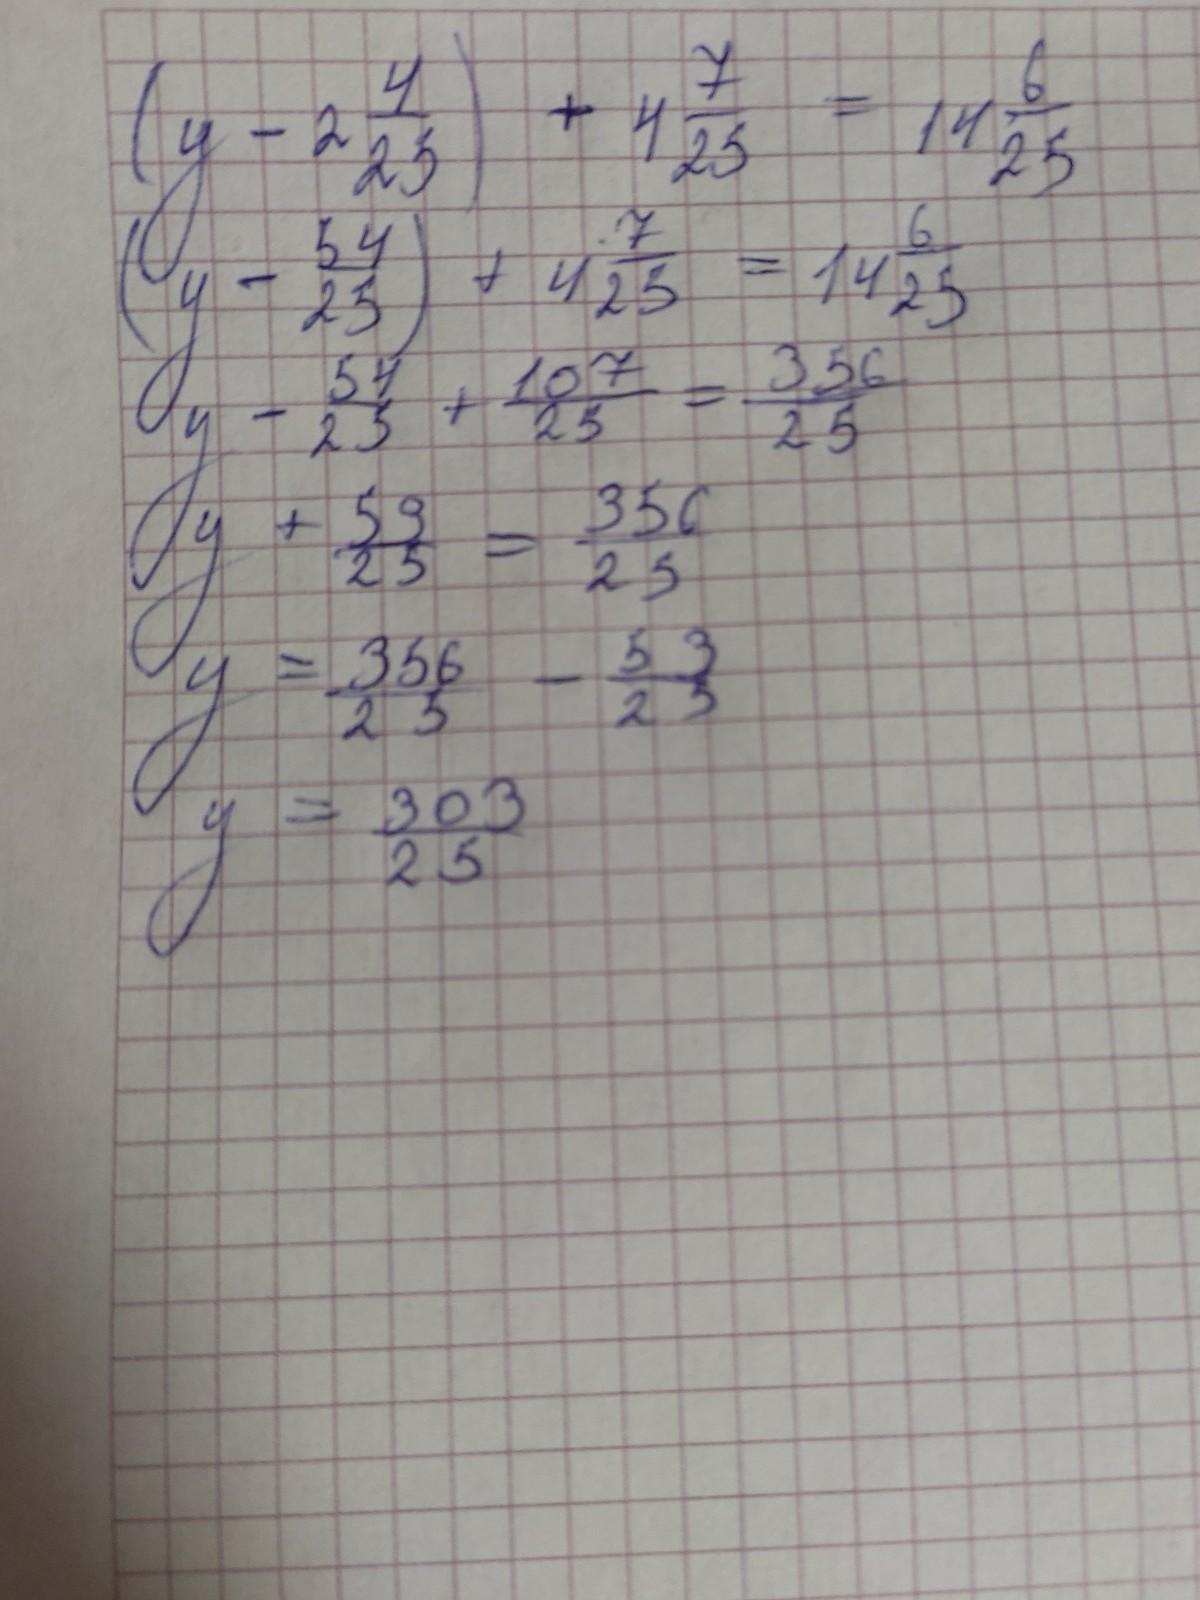 (y - 2 4/25) + 4 7/25 = 14 6/25
(y - 54/25) + 4 7/25 = 14 6/25
y - 54/25 + 107/25 = 356/25
y + 53/25 = 356/25
y = 356/25 - 53/25
y = 303/25